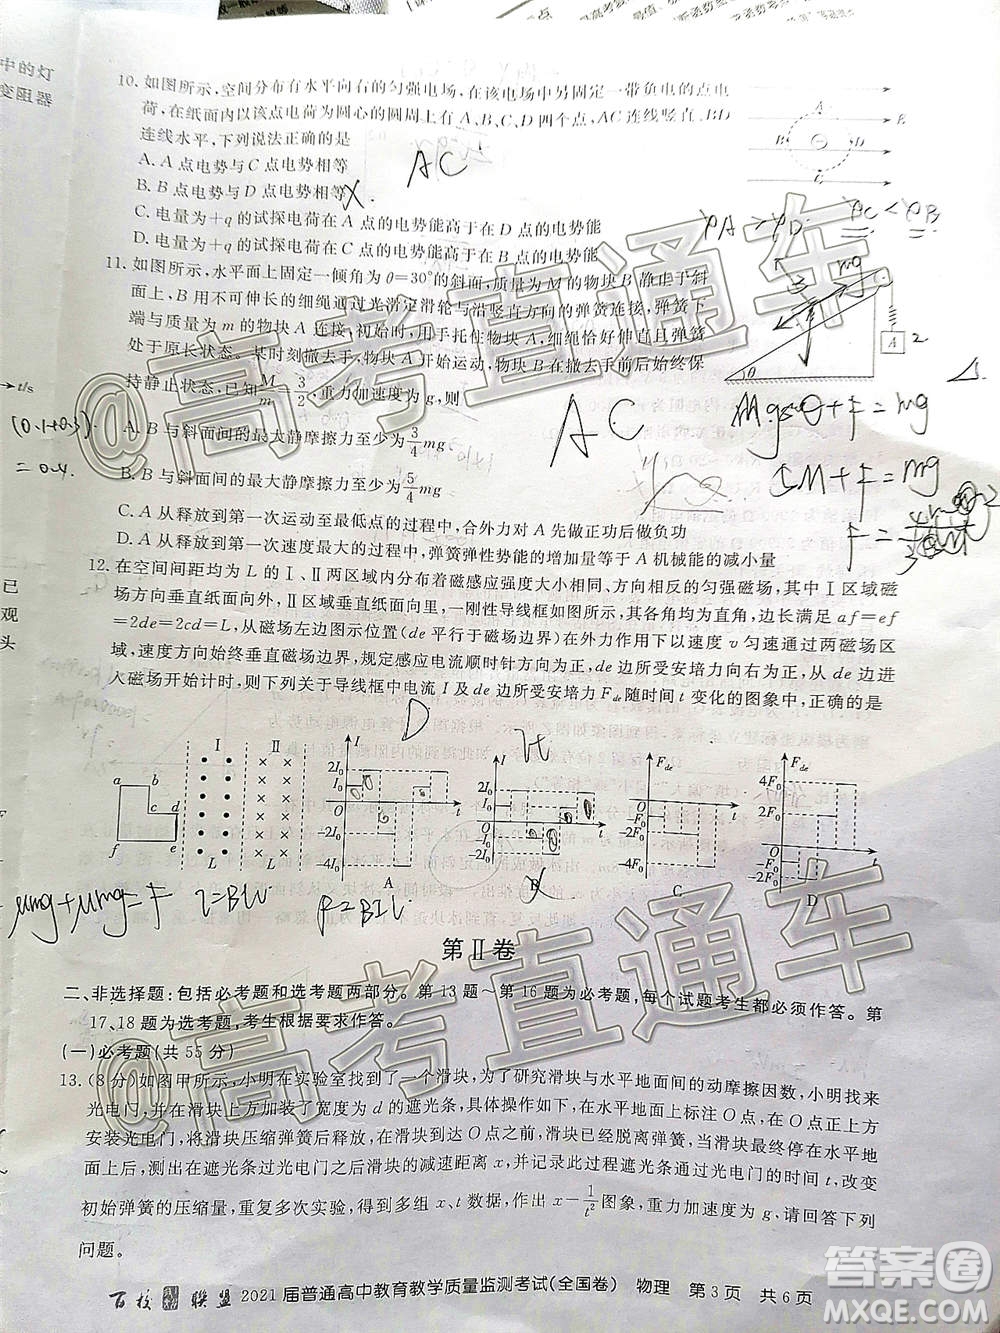 中的灯
变阻器
10. 如图所示,空间分布有水平向右的匀强电场,在该电场中另固定一带负电的点电
荷,在纸面内以该点电荷为圆心的圆周上有A、B、C、D四个点,AC连线竖直,BD
连线水平,下列说法正确的是
A. A点电势与C点电势相等
B. B点电势与D点电势相等
C. 电量为+q的试探电荷在A点的电势能高于在D点的电势能
D. 电量为+q的试探电荷在C点的电势能高于在B点的电势能
AC
A
E
B
D
C
φA > φD φC < φB
11. 如图所示,水平面上固定一倾角为θ=30°的斜面,质量为M的物块B静止于斜
面上,B用不可伸长的细绳通过光滑定滑轮与沿竖直方向的弹簧连接,弹簧下
端与质量为m的物块A连接,初始时,用手托住物块A,细绳恰好伸直且弹簧
处于原长状态。某时刻撤去手,物块A开始运动,物块B在撤去手前后始终保
持静止状态,已知M/m=3/2,重力加速度为g,则
A. B与斜面间的最大静摩擦力至少为3/4mg
B. B与斜面间的最大静摩擦力至少为5/4mg
C. A从释放到第一次运动至最低点的过程中,合外力对A先做正功后做负功
D. A从释放到第一次速度最大的过程中,弹簧弹性势能的增加量等于A机械能的减小量
AC
mg
3
A 2
θ
t/s
(0.1+0.3)
=0.4.
12. 在空间间距均为L的Ⅰ、Ⅱ两区域内分布着磁感应强度大小相同、方向相反的匀强磁场,其中Ⅰ区域磁
场方向垂直纸面向外,Ⅱ区域垂直纸面向里,一刚性导线框如图所示,其各角均为直角,边长满足af=ef
=2de=2cd=L,从磁场左边图示位置(de平行于磁场边界)在外力作用下以速度v匀速通过两磁场区
域,速度方向始终垂直磁场边界,规定感应电流顺时针方向为正,de边所受安培力向右为正,从de边进
入磁场开始计时,则下列关于导线框中电流I及de边所受安培力Fde随时间t变化的图象中,正确的是
已
观
头
D
a b
c d
f e
Ⅰ Ⅱ
L L
I
2I0
I0
O
-2I0
-4I0
t
A
I
2I0
I0
O
-I0
-2I0
t
B
Fde
O
-2F0
-4F0
t
C
Fde
4F0
2F0
O
-F0
-2F0
t
D
μmg+μmg=F
第Ⅱ卷
二、非选择题:包括必考题和选考题两部分。第13题~第16题为必考题,每个试题考生都必须作答。第
17、18题为选考题,考生根据要求作答。
(一)必考题(共55分)
13. (8分)如图甲所示,小明在实验室找到了一个滑块,为了研究滑块与水平地面间的动摩擦因数,小明找来
光电门,并在滑块上方加装了宽度为d的遮光条。具体操作如下:在水平地面上标注O点,在O点上方
安装光电门,将滑块压缩弹簧后释放,在滑块到达O点之前,滑块已经脱离弹簧,滑块最终停在水平地
面上后,测出在遮光条过光电门后滑块的减速距离x,并记录此过程遮光条通过光电门的时间t,改变
初始弹簧的压缩量,重复多次实验,得到多组x、t数据,作出x-1/t²图象,重力加速度为g,请回答下列
问题。
百校联盟2021届普通高中教育教学质量监测考试(全国卷) 物理 第3页 共6页
@高考直通车
@高考直通车
答案圈